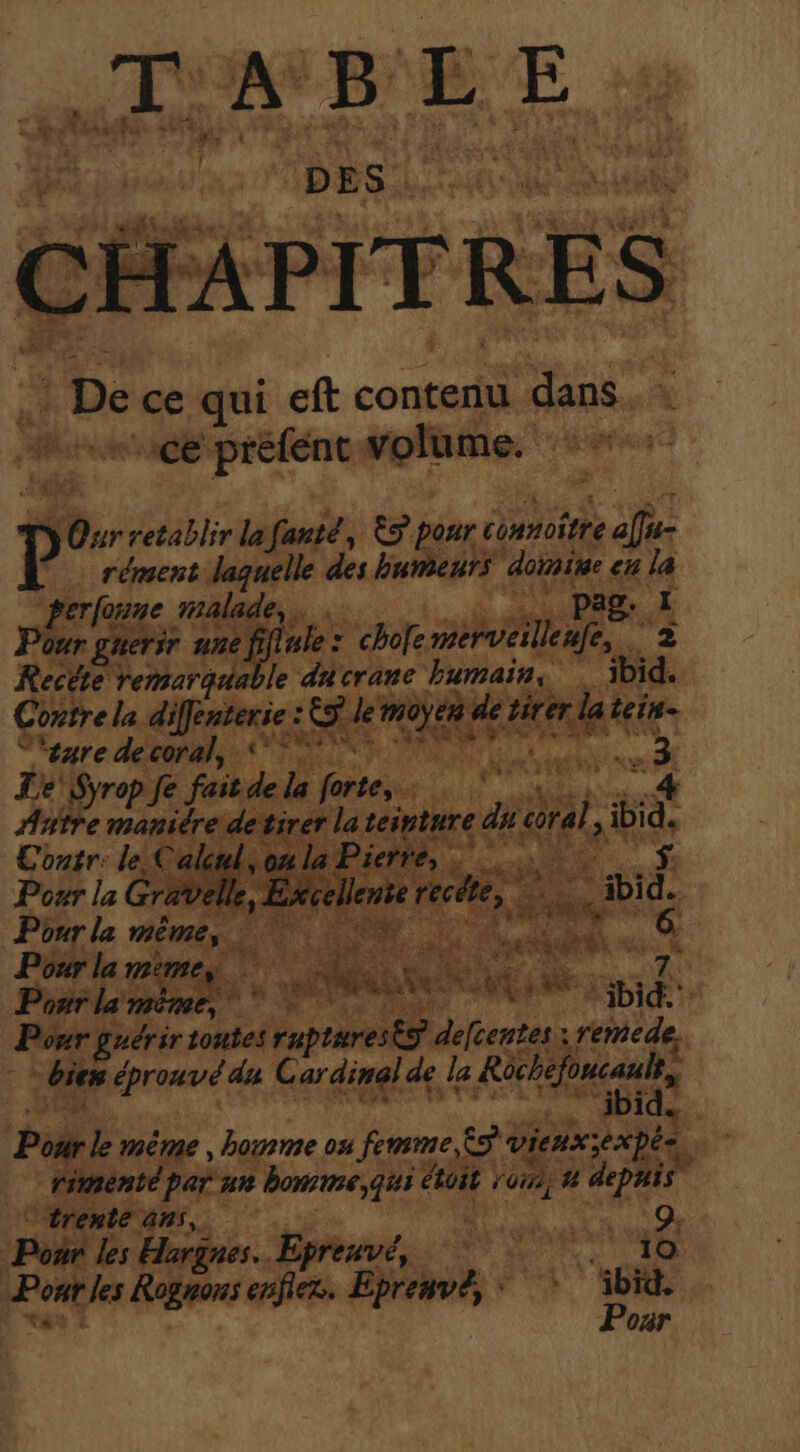 TABLE
DES
CHAPITRES
De ce qui eſt contenu dans
ce preſent volume.
POur retablir la ſanté, & pour connoître aſſu-
rément laquelle des humeurs domine en la
perſonne malade, pag. 1
Pour guerir une fiſtule : choſe merveilleuſe, 2
Recéte remarquable du crane humain, ibid.
Contre la diſſenterie : & le moyen de tirer la tein-
ture de coral, 3
Le Syrop ſe fait de la ſorte, 4
Autre maniére de tirer la teinture du coral, ibid.
Contre le Calcul, ou la Pierre, 5
Pour la Gravelle, Excellente recéte, ibid.
Pour la même, 6
Pour la même, 7
Pour la même, ibid.
Pour guérir toutes ruptures & deſcentes : remede
bien éprouvé du Cardinal de la Rochefoucault,
ibid.
Pour le même, homme ou femme, & vieux ; expé-
rimenté par un homme, qui étoit rompu depuis
trente ans, 9
Pour les Hargnes. Epreuvé, 10
Pour les Rognons enflez. Epreuvé, ibid.
Pour